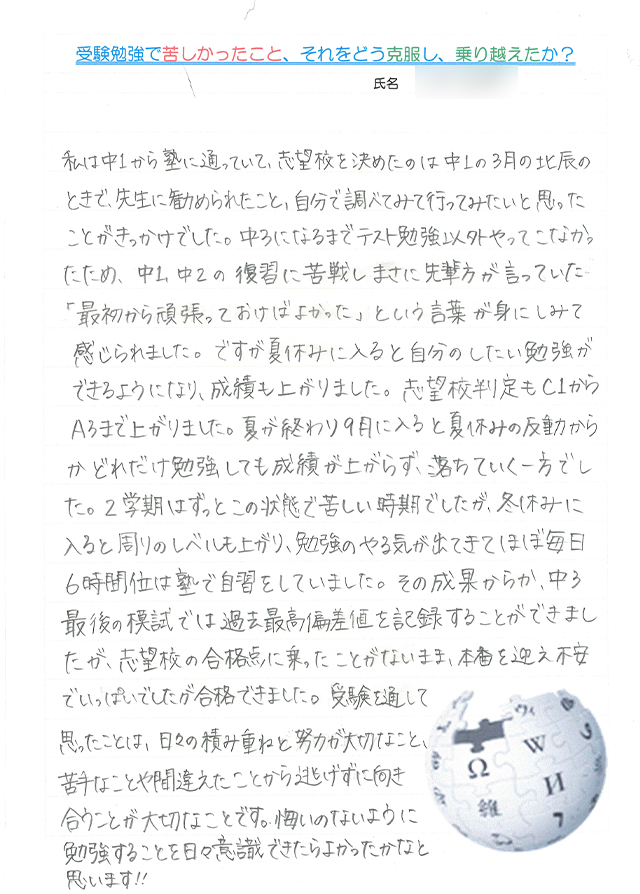 受験勉強で苦しかったこと、それをどう克服し、乗り越えたか？
氏名
私は中1から塾に通っていて、志望校を決めたのは中1の3月の北辰の
ときで、先生に勧められたこと、自分で調べてみて行ってみたいと思った
ことがきっかけでした。中3になるまでテスト勉強以外やってこなかっ
たため、中1,中2の復習に苦戦しまさに先輩方が言っていた
「最初から頑張っておけばよかった」という言葉が身にしみて
感じられました。ですが夏休みに入ると自分のしたい勉強が
できるようになり、成績も上がりました。志望校判定もC1から
A3まで上がりました。夏が終わり9月に入ると夏休みの反動から
かどれだけ勉強しても成績が上がらず、落ちていく一方でし
た。2学期はずっとこの状態で苦しい時期でしたが、冬休みに
入ると周りのレベルも上がり、勉強のやる気が出てきてほぼ毎日
6時間位は塾で自習をしていました。その成果からか、中3
最後の模試では過去最高偏差値を記録することができまし
たが、志望校の合格点に乗ったことがないまま、本番を迎え不安
でいっぱいでしたが合格できました。受験を通して
思ったことは、日々の積み重ねと努力が大切なこと、
苦手なことや間違えたことから逃げずに向き
合うことが大切なことです。悔いのないように
勉強することを日々意識できたらよかったかなと
思います!!
Ω
W
И
維
ウィ
7